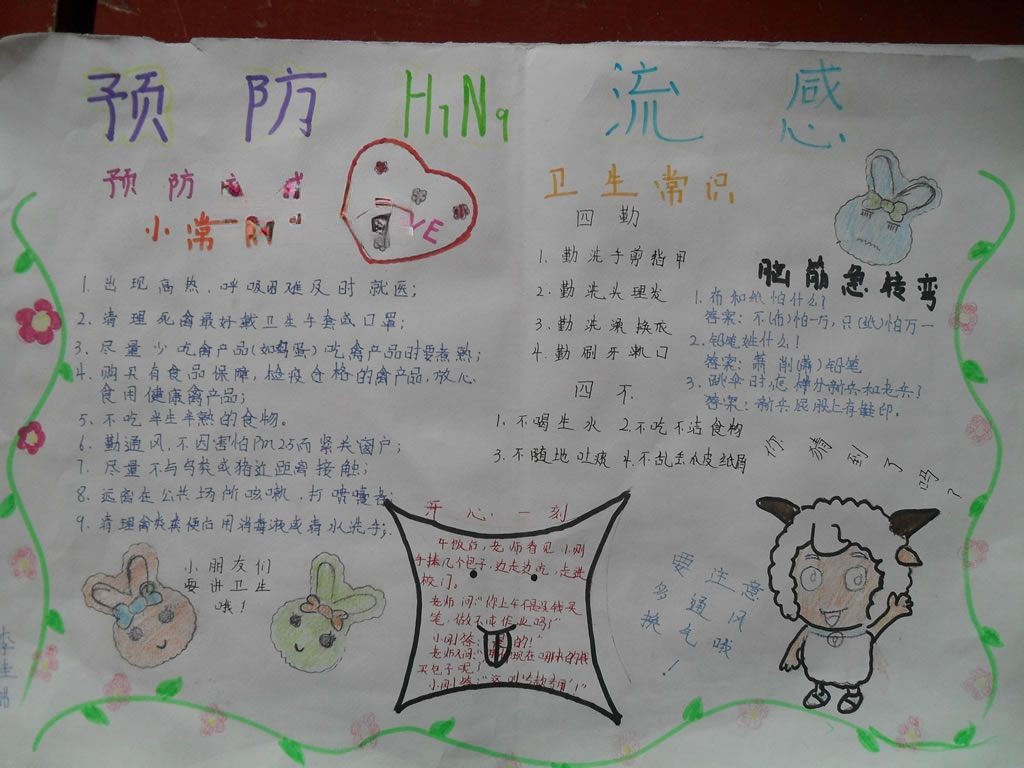 预防H7N9流感
预防流感
小常
YE
1. 出现高热、呼吸困难及时就医;
2. 清理死禽最好戴卫生手套或口罩;
3. 尽量少吃禽产品(如鸡蛋)吃禽产品时要煮熟;
4. 购买有食品保障,检疫合格的禽产品,放心
食用健康禽产品;
5. 不吃半生半熟的食物。
6. 勤通风,不因害怕Pm2.5而紧关窗户;
7. 尽量不与鸟类或猪近距离接触;
8. 远离在公共场所咳嗽、打喷嚏者;
9. 清理禽类粪便后用消毒液或清水洗手;
小朋友们
要讲卫生
哦!
卫生常识
四勤
1. 勤洗手剪指甲
2. 勤洗头理发
3. 勤洗澡换衣
4. 勤刷牙漱口
四不
1. 不喝生水 2.不吃不洁食物
3. 不随地吐痰 4.不乱丢果皮纸屑
脑筋急转弯
1. 布和纸怕什么?
答案:不(布)怕一万,只(纸)怕万一
2. 铅笔姓什么?
答案:萧削(萧)铅笔
3. 跳伞时怎样分新兵和老兵?
答案:新兵屁股上有鞋印。
你猜到了吗?
开心一刻
午饭后,老师看见小刚
手捧几个包子,边走边吃,走进
校门。
老师问:“你上午不是没钱买
笔,做不成作业吗?”
小刚答:“是的!”
老师又问:“现在哪来的钱
买包子呢?
小刚答:“
要注意
多通风
换气哦!